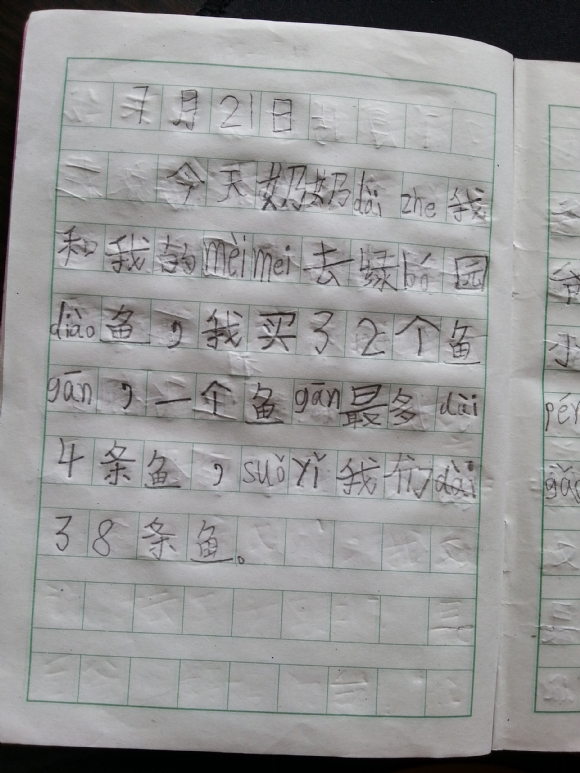 7月21日
今天奶奶dài zhe我
和我的mèimei去绿bó园
diào鱼，我买32个鱼
gān，一个鱼gān最多dài
4条鱼，suǒyǐ我们dài
38条鱼。